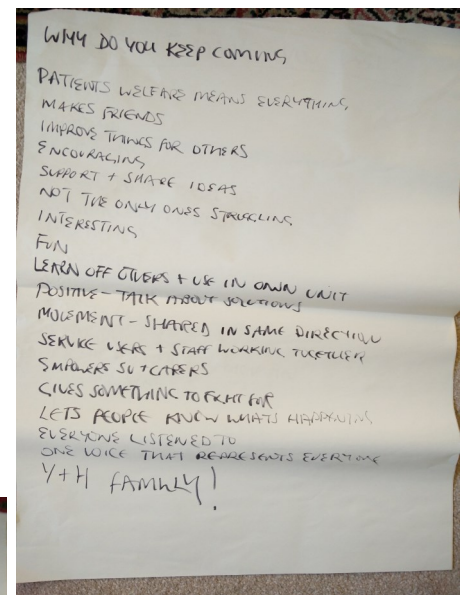 WHY DO YOU KEEP COMING
PATIENTS WELFARE MEANS EVERYTHING
MAKES FRIENDS
IMPROVE THINGS FOR OTHERS
ENCOURAGING
SUPPORT + SHARE IDEAS
NOT THE ONLY ONES STRUGGLING
INTERESTING
FUN
LEARN OFF OTHERS + USE IN OWN UNIT
POSITIVE - TALK ABOUT SOLUTIONS
MOVEMENT - SHARED IN SAME DIRECTION
SERVICE USERS + STAFF WORKING TOGETHER
EMPOWERS SU + CARERS
GIVES SOMETHING TO FIGHT FOR
LETS PEOPLE KNOW WHATS HAPPENING
EVERYONE LISTENED TO
ONE VOICE THAT REPRESENTS EVERYONE
Y+H FAMILY!